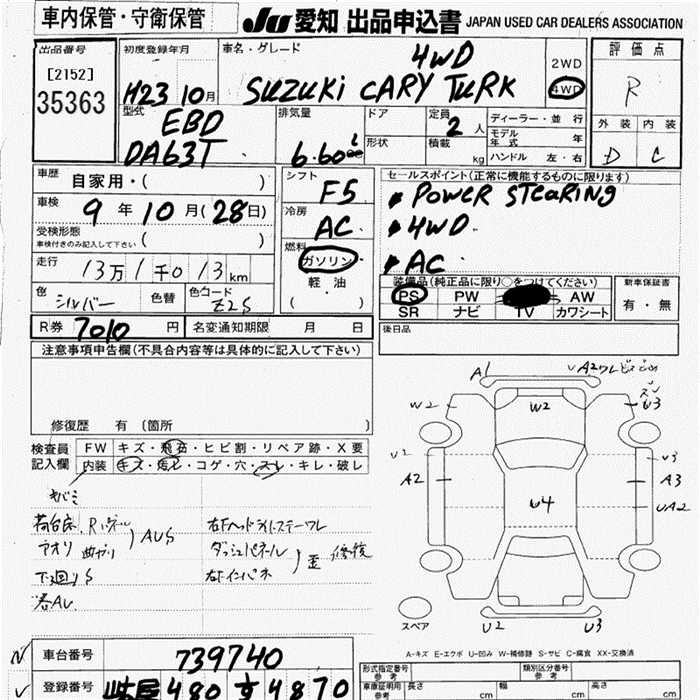 車内保管・守衛保管
JU 愛知 出品申込書 JAPAN USED CAR DEALERS ASSOCIATION
出品番号
[2152]
35363
初度登録年月
H23 10月
車名・グレード
4WD
SUZUKi CARY TURK
2WD
4WD
評価点
R
外装 内装
D C
型式
EBD
DA63T
排気量
6.60
ドア
形状
定員
2人
積載
kg
ディーラー・並行
モデル年式 年
ハンドル 左・右
車歴
自家用・( )
車検
9年10月(28日)
受検形態
車検付きのみ記入して下さい ( )
走行
13万1千013km
色
シルバー
色替
色コード
Z2S
シフト
F5
冷房
AC
燃料
ガソリン
軽・油
( )
セールスポイント(正常に機能するものに限ります)
POWER STEARING
4WD
AC
装備品(純正品に限り○をつけてください)
PS PW AW
SR ナビ TV カワシート
新車保証書
有・無
R券 7010円
名変通知期限 月 日
後日品
注意事項申告欄(不具合内容等は具体的に記入して下さい)
修復歴 有 〔箇所
検査員
記入欄
FW キズ・飛石・ヒビ割・リペア跡・X要
内装 キズ・汚レ・コゲ・穴・スレ・キレ・破レ
サバミ
荷台床、
アオリ 曲がり
AUS
下廻りS
右Fヘッドライトステーワレ
ダッシュパネル
右Fインパネ
歪 修復
A1
W2
W2
U3
U2
U3
A2
A3
U4
UA2
スペア
U2
U3
A-キズ E-エクボ U-凹み W-補修跡 S-サビ C-腐食 XX-交換済
車台番号
739740
登録番号
480 す 4870
形式指定番号
参考
類別区分番号
参考
車庫証明用
参考
cm
cm
cm